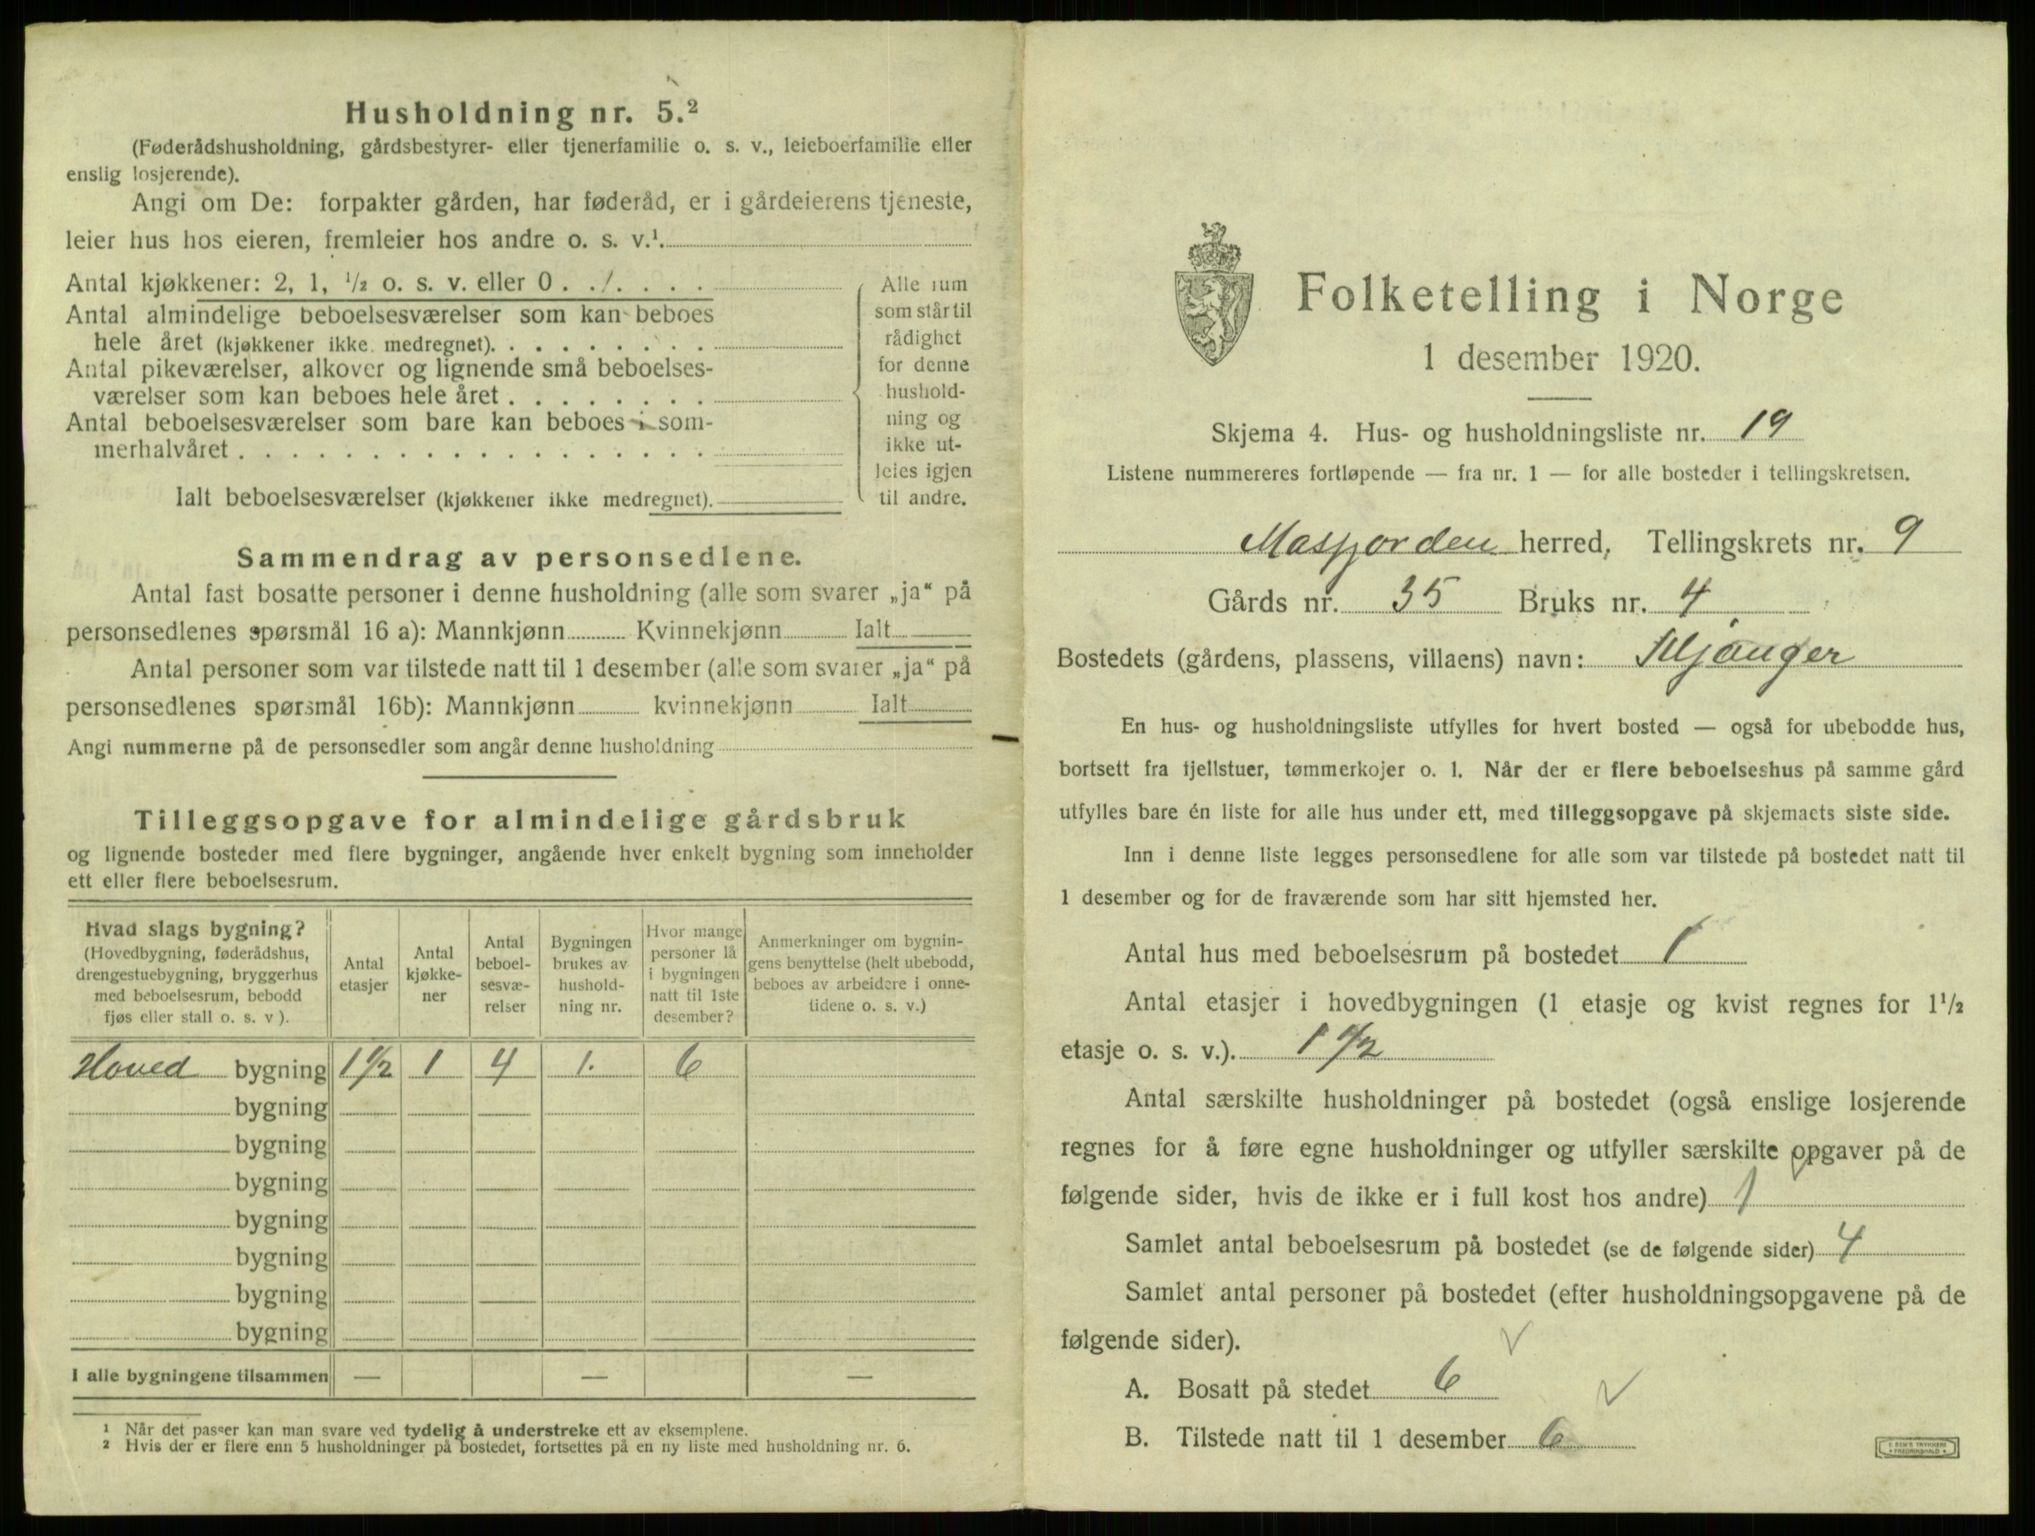 Husholdning nr. 5.²
(Føderådshusholdning, gårdsbestyrer- eller tjenerfamilie o. s. v., leieboerfamilie eller
enslig losjerende).
Angi om De: forpakter gården, har føderåd, er i gårdeierens tjeneste,
leier hus hos eieren, fremleier hos andre o. s. v.¹
Antal kjøkkener: 2, 1, ½ o. s. v. eller 0
Antal almindelige beboelsesværelser som kan beboes
hele året (kjøkkener ikke medregnet)
Antal pikeværelser, alkover og lignende små beboelses-
værelser som kan beboes hele året
Antal beboelsesværelser som bare kan beboes i som-
merhalvåret
Ialt beboelsesværelser (kjøkkener ikke medregnet)
Alle rum
som står til
rådighet
for denne
hushold-
ning og
ikke ut-
leies igjen
til andre.
Sammendrag av personsedlene.
Antal fast bosatte personer i denne husholdning (alle som svarer „ja“ på
personsedlenes spørsmål 16 a): Mannkjønn Kvinnekjønn Ialt
Antal personer som var tilstede natt til 1 desember (alle som svarer „ja“ på
personsedlenes spørsmål 16b): Mannkjønn kvinnekjønn Ialt
Angi nummerne på de personsedler som angår denne husholdning
Tilleggsopgave for almindelige gårdsbruk
og lignende bosteder med flere bygninger, angående hver enkelt bygning som inneholder
ett eller flere beboelsesrum.
Hvad slags bygning?
(Hovedbygning, føderådshus,
drengestuebygning, bryggerhus
med beboelsesrum, bebodd
fjøs eller stall o. s. v ).
Antal
etasjer
Antal
kjøkke-
ner
Antal
beboel-
sesvæ-
relser
Bygningen
brukes av
hushold-
ning nr.
Hvor mange
personer lå
i bygningen
natt til 1ste
desember?
Anmerkninger om bygnin-
gens benyttelse (helt ubebodd,
beboes av arbeidere i onne-
tidene o. s. v.)
Hoved bygning 1½ 1 4 1. 6
bygning
bygning
bygning
bygning
bygning
bygning
bygning
I alle bygningene tilsammen — — —
¹ Når det passer kan man svare ved tydelig å understreke ett av eksemplene.
² Hvis der er flere enn 5 husholdninger på bostedet, fortsettes på en ny liste med husholdning nr. 6.
Folketelling i Norge
1 desember 1920.
Skjema 4. Hus- og husholdningsliste nr. 19
Listene nummereres fortløpende — fra nr. 1 — for alle bosteder i tellingskretsen.
Masfjorden herred, Tellingskrets nr. 9
Gårds nr. 35 Bruks nr. 4
Bostedets (gårdens, plassens, villaens) navn:
En hus- og husholdningsliste utfylles for hvert bosted — også for ubebodde hus,
bortsett fra fjellstuer, tømmerkojer o. l. Når der er flere beboelseshus på samme gård
utfylles bare én liste for alle hus under ett, med tilleggsopgave på skjemaets siste side.
Inn i denne liste legges personsedlene for alle som var tilstede på bostedet natt til
1 desember og for de fraværende som har sitt hjemsted her.
Antal hus med beboelsesrum på bostedet 1
Antal etasjer i hovedbygningen (1 etasje og kvist regnes for 1½
etasje o. s. v.). 1½
Antal særskilte husholdninger på bostedet (også enslige losjerende
regnes for å føre egne husholdninger og utfyller særskilte opgaver på de
følgende sider, hvis de ikke er i full kost hos andre) 1
Samlet antal beboelsesrum på bostedet (se de følgende sider) 4
Samlet antal personer på bostedet (efter husholdningsopgavene på de
følgende sider).
A. Bosatt på stedet 6
B. Tilstede natt til 1 desember 6